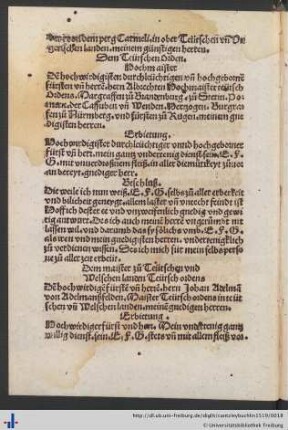 der von dem perg Carmeli, in ober Teütschen vñ Un
gerischen landen, meinem günstigen herren.
Dem Teütschen orden.
Hochmaister
Dē hochwirdigisten durchleüchtigen vñ hochgebornē
fürsten vñ herrē, hern Albrechten Hochmaister teütsch
Ordens, Marggraffen zů Brandenburg, zů Stetin, Po
mern, der Cassuben vñ Wenden Hertzogen, Burggra
fen zů Nürmberg, vnd fürsten zů Rugen, meinem gne
digisten herren.
Erbietung.
Hochwirdigister durchleüchtiger vnnd hochgeborner
fürst vñ herr, mein gantz vndertenig dienst sein, E. F.
G. mit vnuerdroßnem fleiß, in aller diemütkeyt zůuor
an bereyt, gnediger herr.
Beschluß.
Die weile ich nun weiß, E. F. G. selbs zů aller erberkeit
vnd bilicheit geneygt, allem laster vñ vnrecht feindt ist
Hoff ich dester ee vnd vnzweifenlich gnedig vnd gewirig
antwurt. Des ich auch mein herrē vngerümbt nit
lassen wil, vnd darumb das
als vmb E. F. G.
als vmb mein gnedigisten herren, vndertenigklich
zů verdienen wissen. Des ich mich für mein selbs perso
ne zů aller zeit erbeüt.
Dem maister zů Teütschen vnd
Welschen landen Teütsch ordens
Dē hochwirdigē fürstē vñ herrē, hern Johan Adelmā
von Adelmanßfelden, Maister Teütsch ordens in teüt
schen vñ Welschen landen, meinē gnedigen herren.
Erbietung.
Hochwirdiger fürst vnd herr. Mein vndertenig gantz
willig dienst, sein, E. F. G. stets vñ mit allem fleiß vor
http://dl.ub.uni-freiburg.de/diglit/cantzleybuchlin1519/0018
© Universitätsbibliothek Freiburg